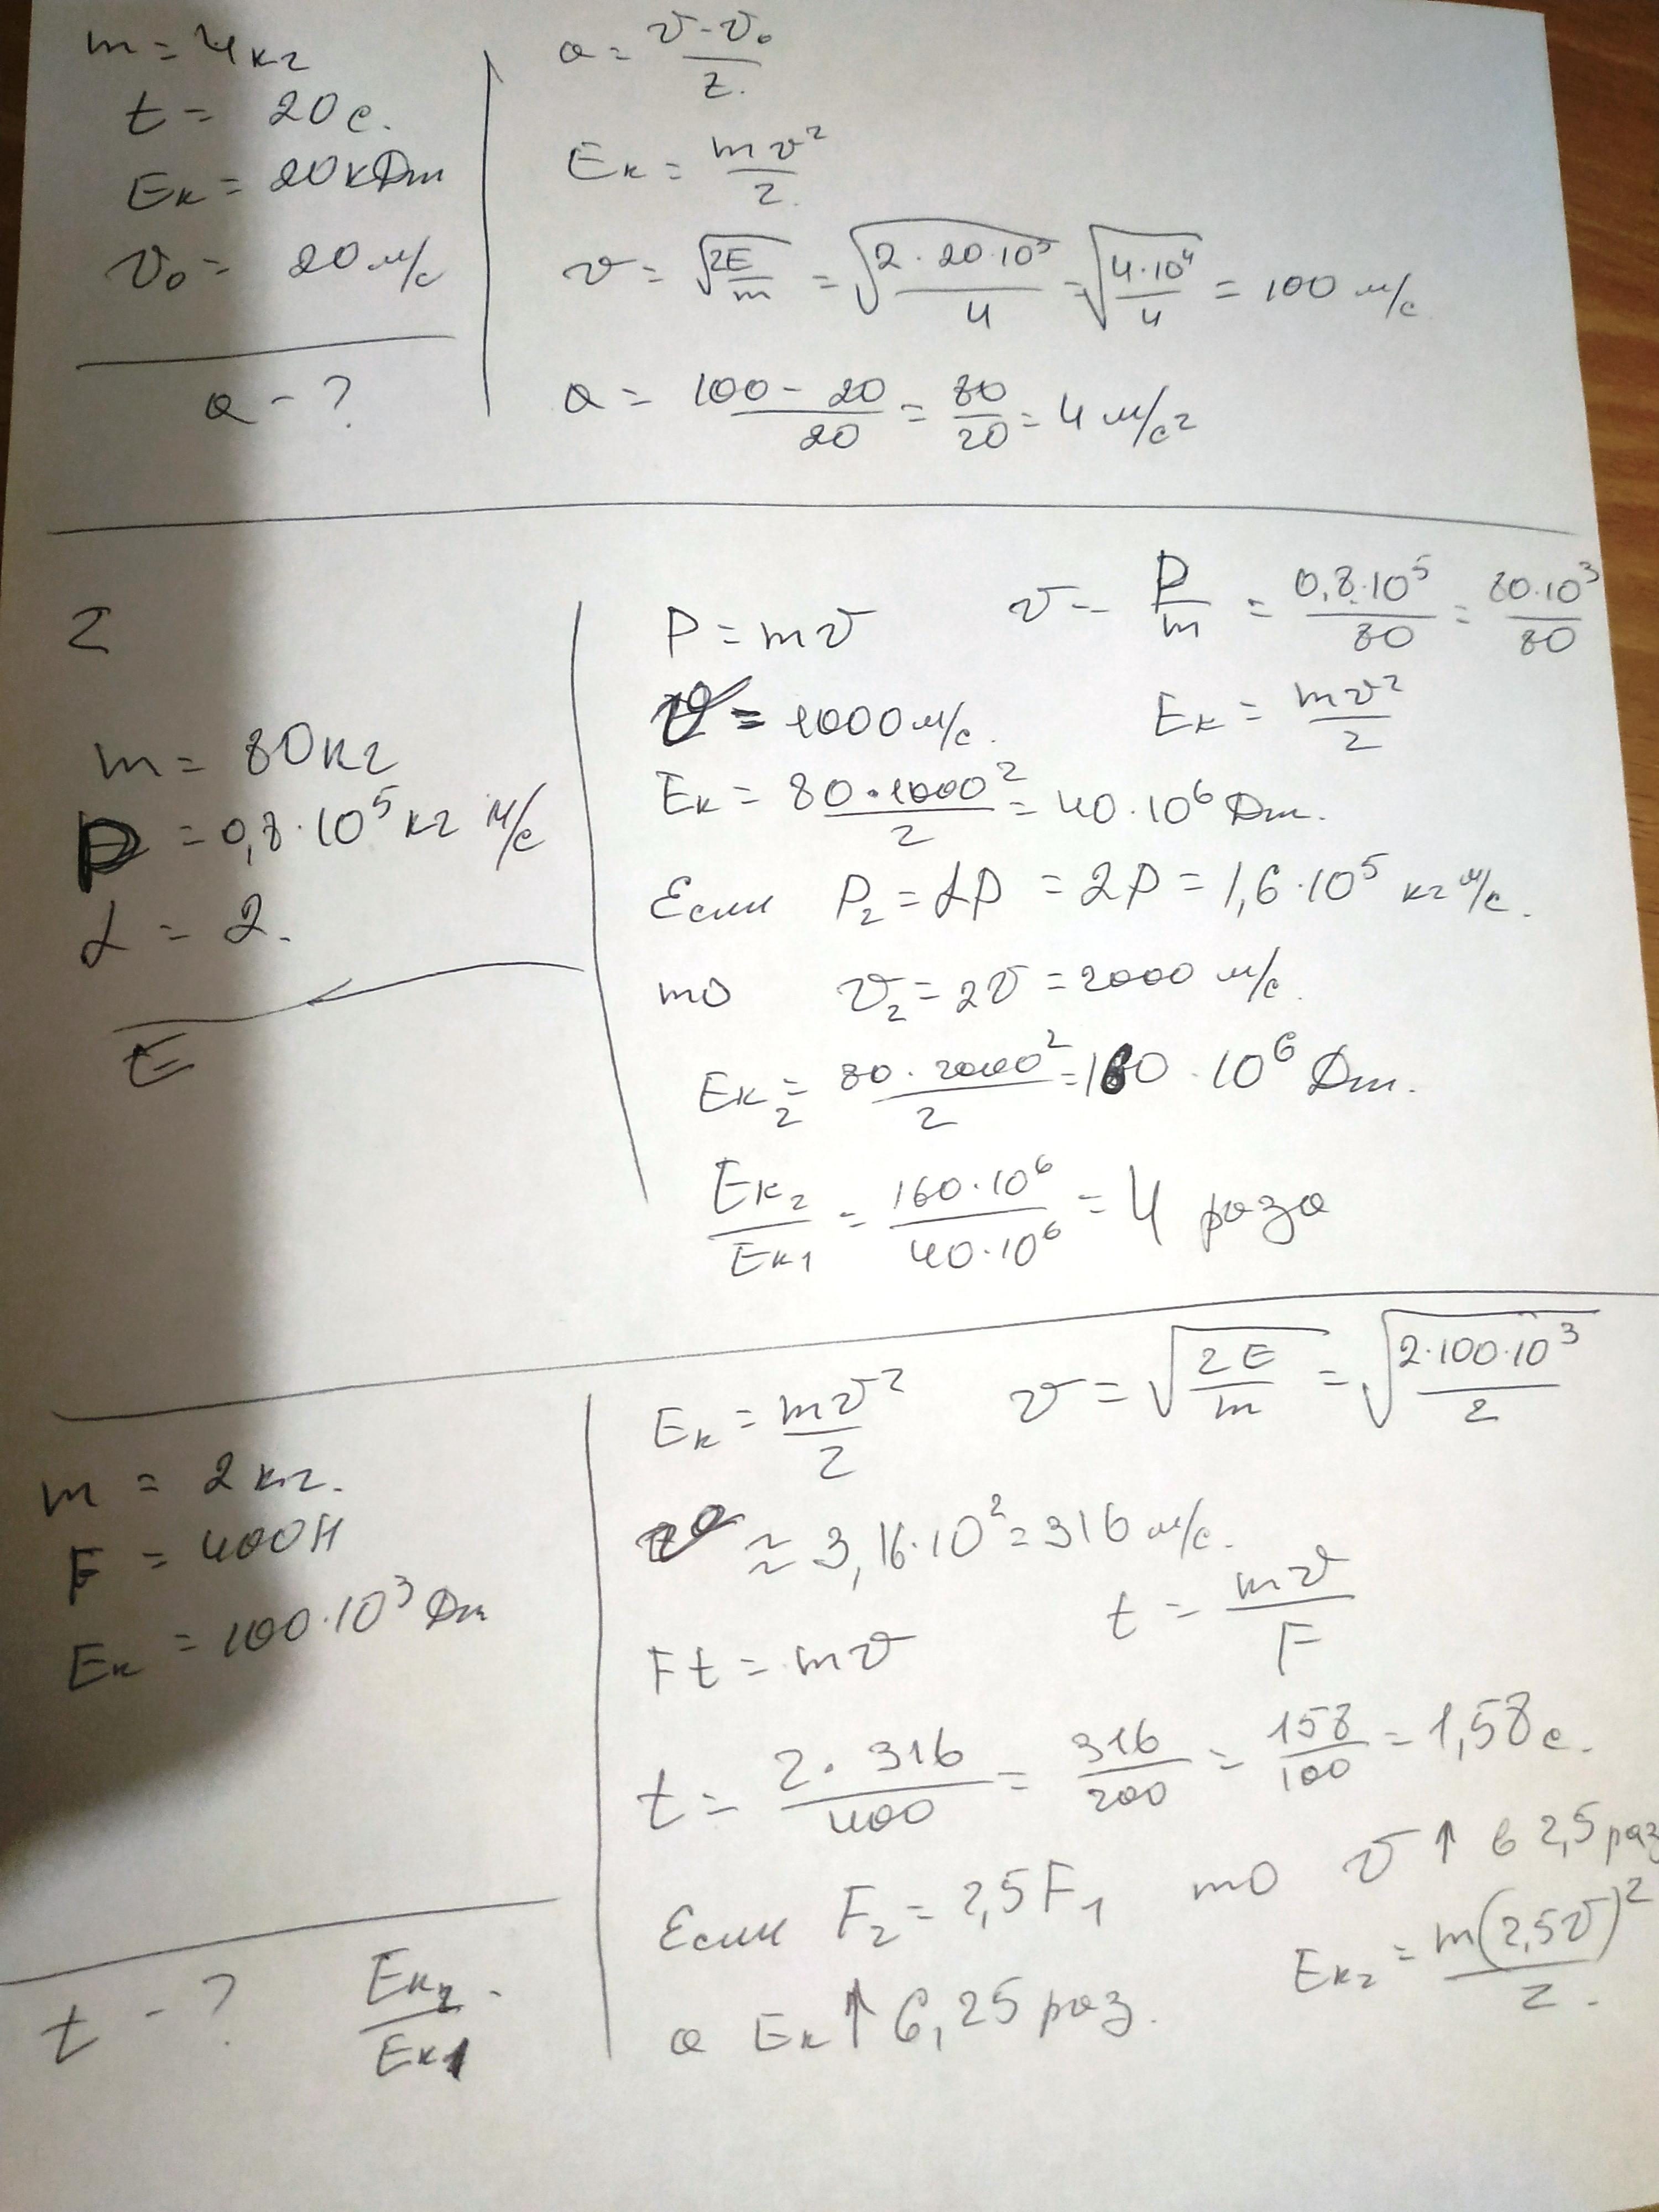 m = 4кг
t = 20 с.
Eк = 20кДж
v₀ = 20 м/с
a - ?
a = (v - v₀)/t.
Eк = mv²/2.
v = √(2E/m) = √(2 · 20·10³/4) = √(4·10⁴/4) = 100 м/с
a = (100 - 20)/20 = 80/20 = 4 м/с²
2
m = 80кг
P = 0,8·10⁵ кг м/с
α = 2.
E
P = mv v = P/m = 0,8·10⁵/80 = 80·10³/80
v = 1000 м/с. Eк = mv²/2
Eк = 80·1000²/2 = 40·10⁶ Дж.
Если P₂ = αP = 2P = 1,6·10⁵ кг м/с.
то v₂ = 2v = 2000 м/с.
Eк₂ = 80·2000²/2 = 160·10⁶ Дж.
Eк₂/Eк1 = 160·10⁶/40·10⁶ = 4 раза
m = 2кг.
F = 400Н
Eк = 100·10³ Дж
t - ? Eк₂/Eк1.
Eк = mv²/2 v = √(2E/m) = √(2·100·10³/2)
v ≈ 3,16·10² = 316 м/с.
Ft = mv t = mv/F
t = 2·316/400 = 316/200 = 158/100 = 1,58 с.
Если F₂ = 2,5F₁ то v ↑ в 2,5 раз
а Eк ↑ 6,25 раз. Eк₂ = m(2,5v)²/2.